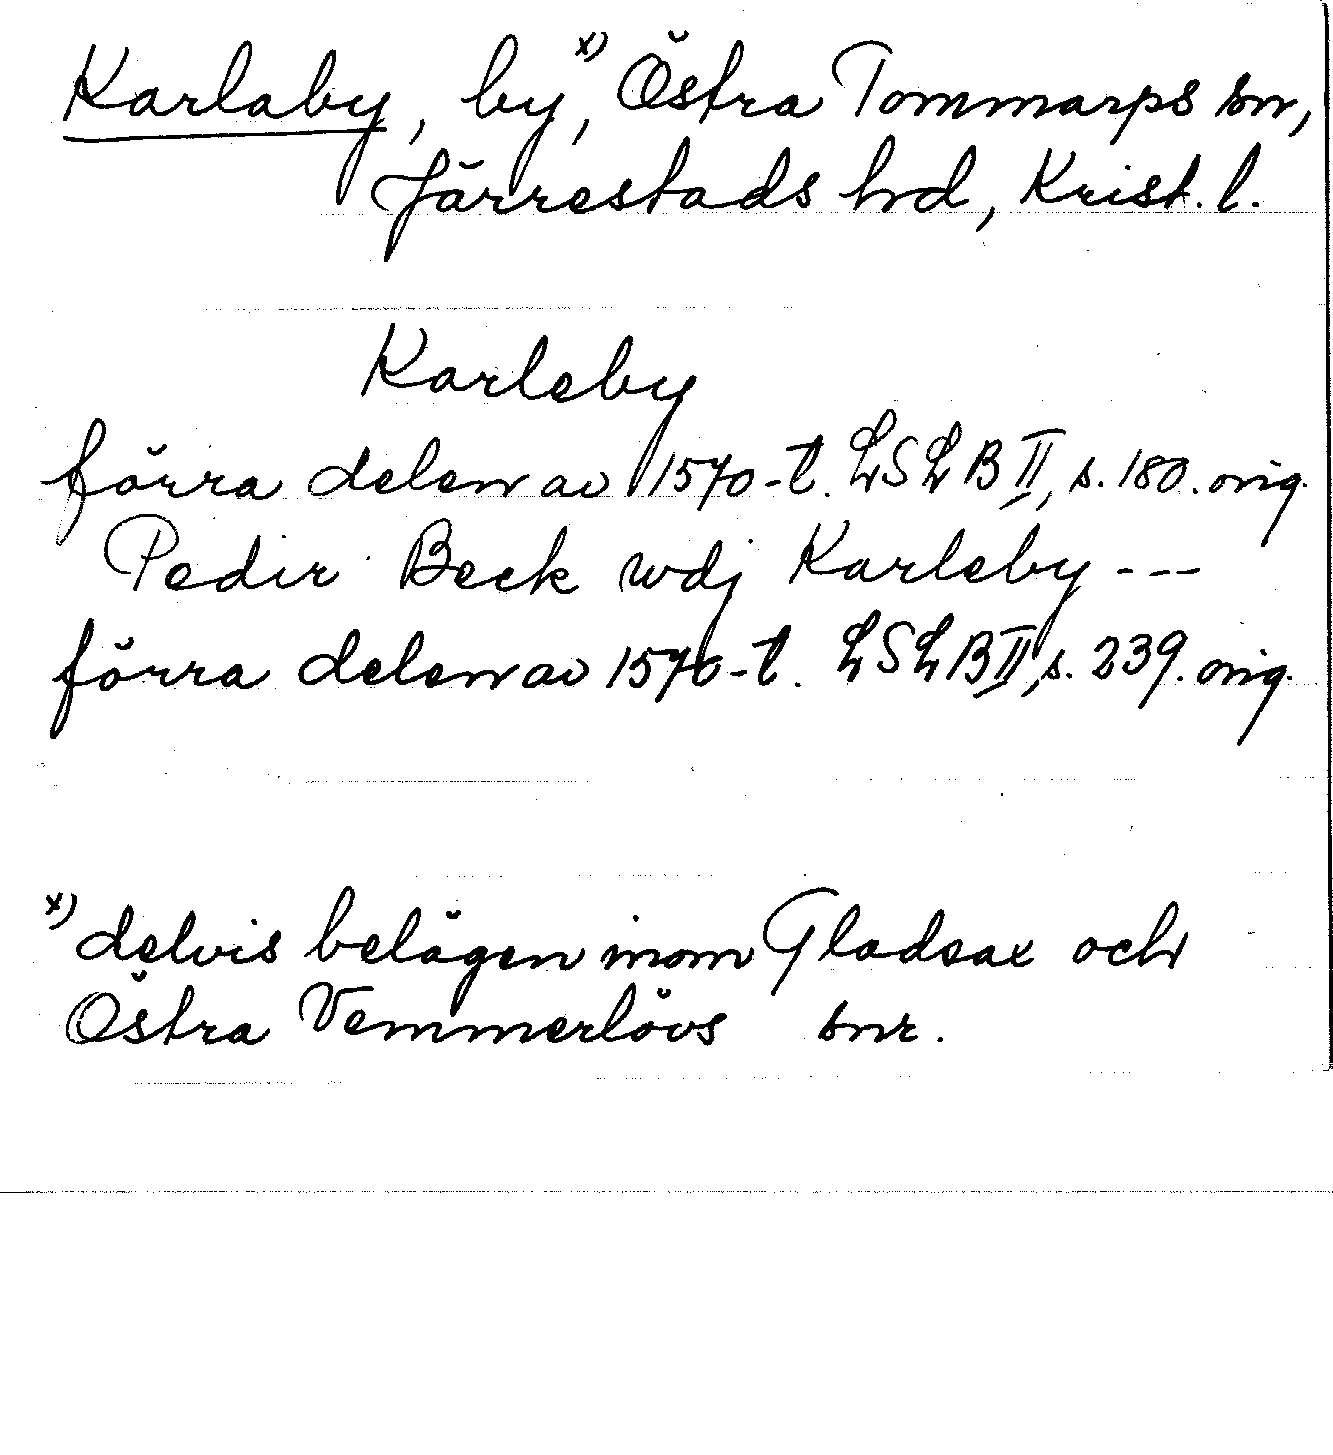 Karlaby, by,x) Östra Tommarps sn,
Järrestads hrd, Krist. l.
Karleby
förra delen av 1570-t. LSLB II, s. 180. orig.
Pedir Beck wdj Karleby ---
förra delen av 1570-t. LSLB II, s. 239. orig.
x) delvis belägen inom Gladsax och
Östra Vemmerlövs snr.